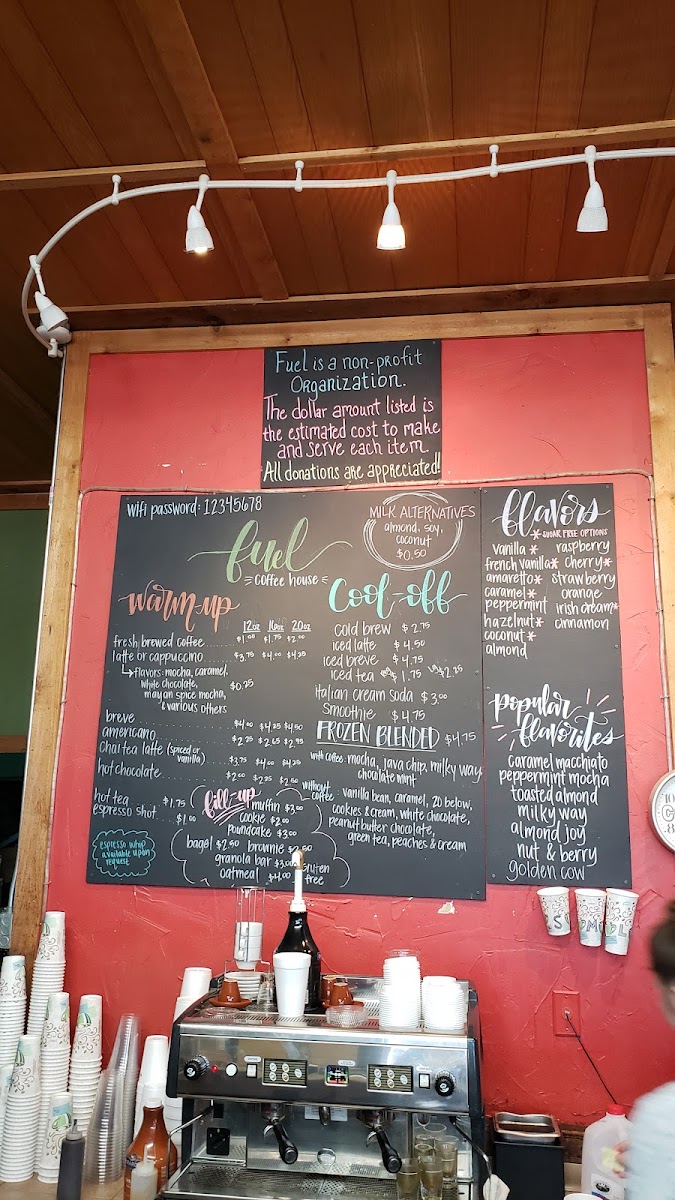 Fuel is a non-profit
Organization.
The dollar amount listed is
the estimated cost to make
and serve each item.
All donations are appreciated!!
wifi password: 12345678
fuel
coffee house
MILK ALTERNATIVES
almond, soy,
coconut
$0.50
warm-up
12oz 16oz 20oz
fresh brewed coffee $1.50 $1.75 $2.00
latte or cappuccino $3.75 $4.00 $4.25
flavors: mocha, caramel,
white chocolate, $0.25
mayan spice mocha,
& various others
breve $4.00 $4.25 $4.50
americano $2.25 $2.65 $2.95
chai tea latte (spiced or
vanilla) $3.75 $4.00 $4.25
hot chocolate $2.00 $2.25 $2.50
hot tea $1.75
espresso shot $1.00
espresso whip
available upon
request
fill-up
muffin $3.00
cookie $2.00
poundcake $3.00
bagel $2.50 brownie
granola bar $3.00
oatmeal $4.00 gluten
free
cool-off
cold brew $2.75
iced latte $4.50
iced breve $4.75
iced tea $1.75 $2.25
italian cream soda $3.00
smoothie $4.75
FROZEN BLENDED $4.75
with coffee: mocha, java chip, milky way
chocolate mint
without
coffee: vanilla bean, caramel, 20 below,
cookies & cream, white chocolate,
peanut butter chocolate,
green tea, peaches & cream
flavors
*SUGAR FREE OPTIONS
vanilla* raspberry
french vanilla* cherry*
amaretto* strawberry
caramel* orange
peppermint irish cream*
hazelnut* cinnamon
coconut*
almond
popular
flavorites
caramel macchiato
peppermint mocha
toasted almond
milky way
almond joy
nut & berry
golden cow
S M L